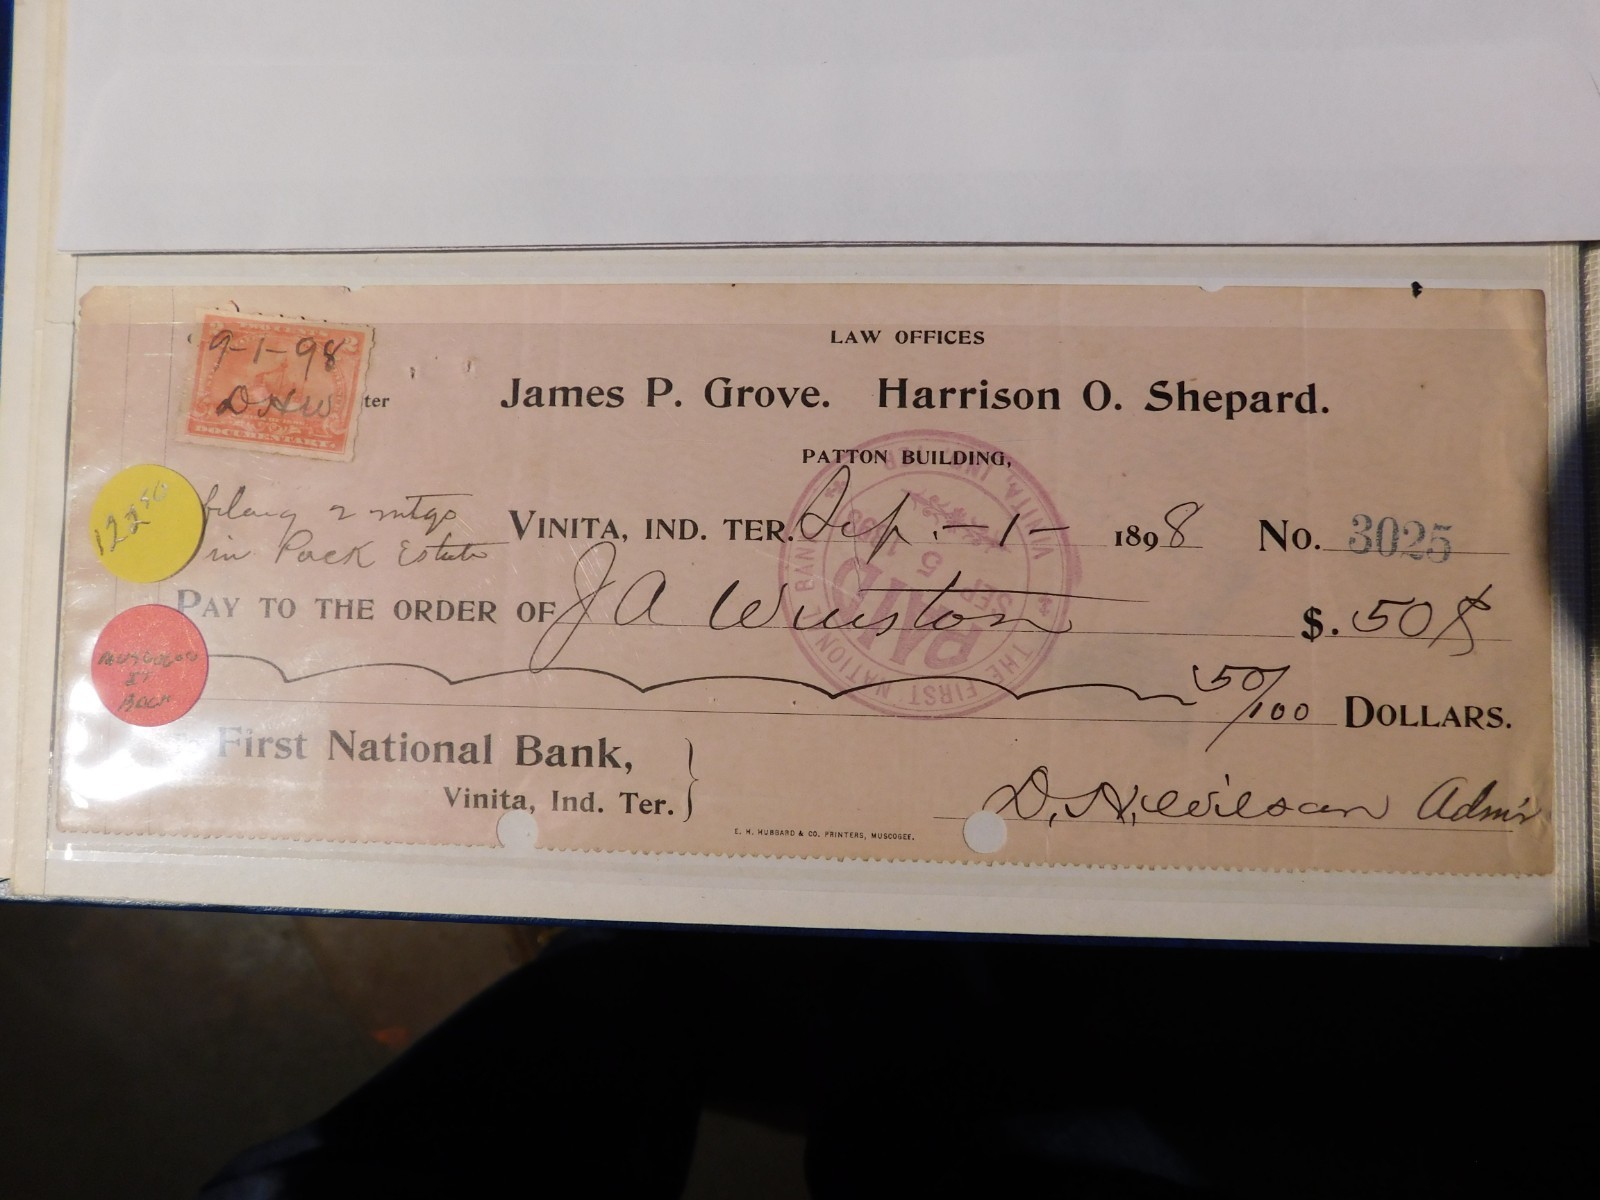 TWO CENTS
2 2
9-1-98
DHW
DOCUMENTARY.
ter
LAW OFFICES
James P. Grove. Harrison O. Shepard.
PATTON BUILDING,
122 50
filing 2 mtgs
in Pack Estate
VINITA, IND. TER. Sep. -1- 1898 No. 3025
PAY TO THE ORDER OF J A Winston $. 50 ¢
50/100 DOLLARS.
THE FIRST NATIONAL BANK
VINITA, IND.
PAID
SEP 5 1898
IT
BACK
First National Bank,
Vinita, Ind. Ter.
D. H. Wilson Adm'r
E. H. HUBBARD & CO. PRINTERS, MUSCOGEE.